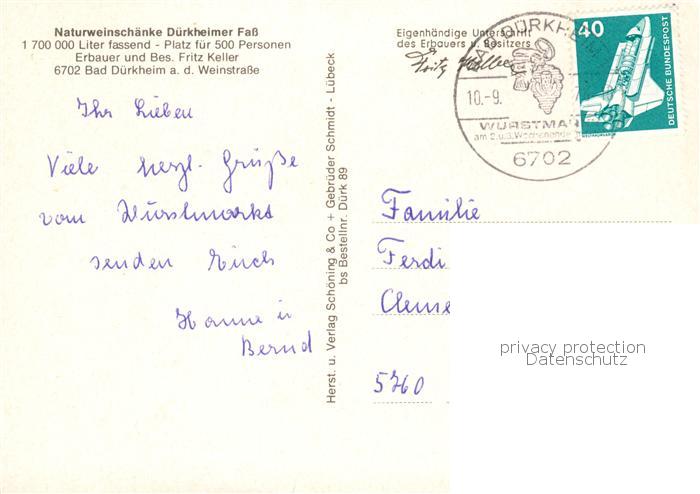 Naturweinschänke Dürkheimer Faß
1 700 000 Liter fassend - Platz für 500 Personen
Erbauer und Bes. Fritz Keller
6702 Bad Dürkheim a. d. Weinstraße
Eigenhändige Unterschrift
des Erbauers u. Besitzers
Fritz Keller
BAD DÜRKHEIM
10.-9.
WURSTMAR
am 2.u.3. Wochenende
6702
40
DEUTSCHE BUNDESPOST
Ihr Lieben
Viele herzl. Grüße
vom Wurstmarkt
senden Euch
Hanne u
Bernd
Herst. u. Verlag Schöning & Co + Gebrüder Schmidt - Lübeck
bs Bestellnr. Dürk 89
Familie
Ferdi
Cleme
5760
privacy protection
Datenschutz